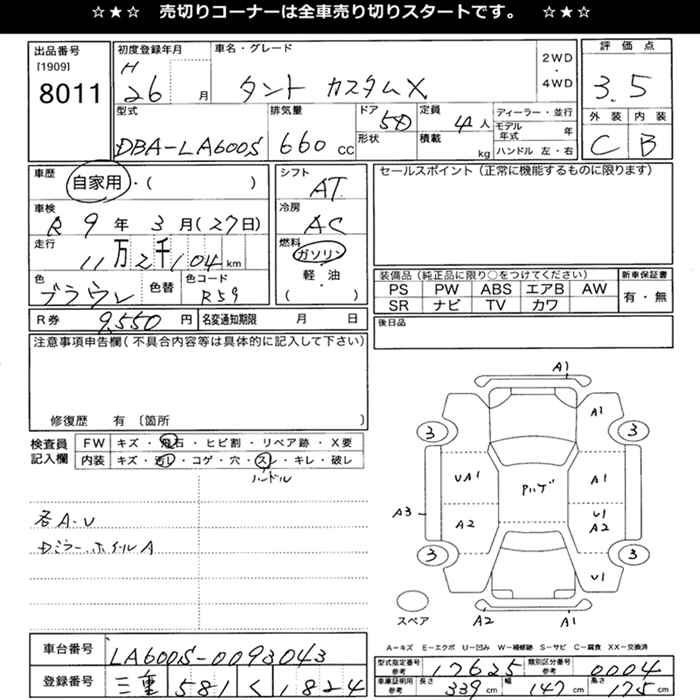 ☆★☆ 売切りコーナーは全車売り切りスタートです。 ☆★☆
出品番号
[1909]
8011
初度登録年月
H
26 月
車名・グレード
タント カスタムX
2WD
・
4WD
評価点
3.5
外装 内装
C B
型式
DBA-LA600S
排気量
660 cc
ドア
5D
形状
定員
4人
積載
kg
ディーラー・並行
モデル年式 年
ハンドル 左・右
車歴
自家用・( )
車検
R 9年 3月(27日)
走行
11万2千104km
色
ブラウン
色替
色コード
R59
シフト
AT
冷房
AC
燃料
ガソリン
軽・油
( )
セールスポイント(正常に機能するものに限ります)
装備品(純正品に限り○をつけてください)
PS PW ABS エアB AW
SR ナビ TV カワ
新車保証書
有・無
R券 9,550円
名変通知期限 月 日
後日品
注意事項申告欄(不具合内容等は具体的に記入して下さい)
修復歴 有〔箇所 〕
検査員
記入欄
FW キズ・飛石・ヒビ割・リペア跡・X要
内装 キズ・汚レ・コゲ・穴・スレ・キレ・破レ
ハンドル
各A・U
Dミラー、ホイルA
A1
A1
3 3
UA1 A1
A3
A2
U1
A2
3 3
U1
スペア
A2 A1
A=キズ E=エクボ U=凹み W=補修跡 S=サビ C=腐食 XX=交換済
車台番号
LA600S-0093043
登録番号
三重 581 く 1824
型式指定番号
参考
17625
類別区分番号
参考
0004
車庫証明用
参考
長さ 339cm 幅 147cm 高さ 175cm